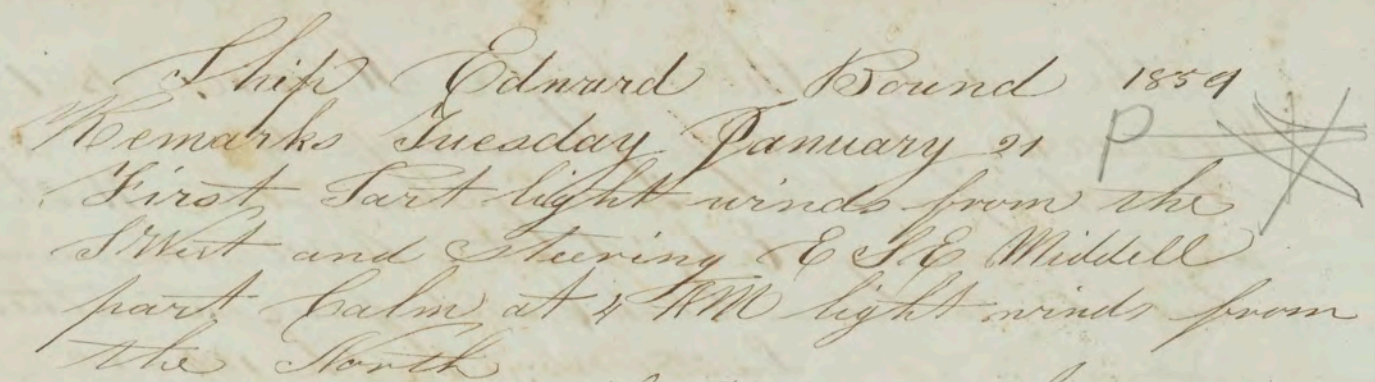 Ship Edward Bound 1859
Remarks Tuesday January 21 P
First Part light winds from the
S West and Steering E S E Middell
part Calm at 4 AM light winds from
the North